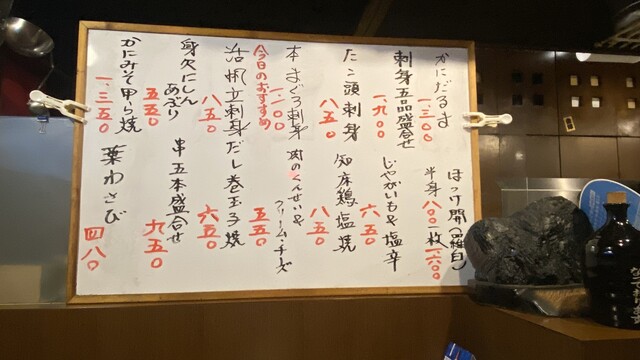 かにだるま
一、三〇〇
刺身五品盛合せ
一、九〇〇
たこ頭刺身
八五〇
本まぐろ刺身
一、一〇〇
今日のおすすめ
活帆立刺身
八五〇
身欠にしん
あぶり
五五〇
かにみそ甲ら焼
一、三五〇
ほっけ開(羅臼)
半身八〇〇一枚一、六〇〇
じゃがいも&塩辛
六五〇
知床鶏塩焼
八五〇
肉のくんせい&
クリーム・チーズ
五五〇
だし巻玉子焼
六五〇
串五本盛合せ
九五〇
葉わさび
四八〇